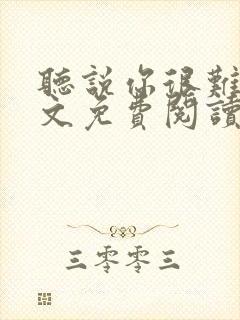 聽說你很難
文免費閱讀
三零零三